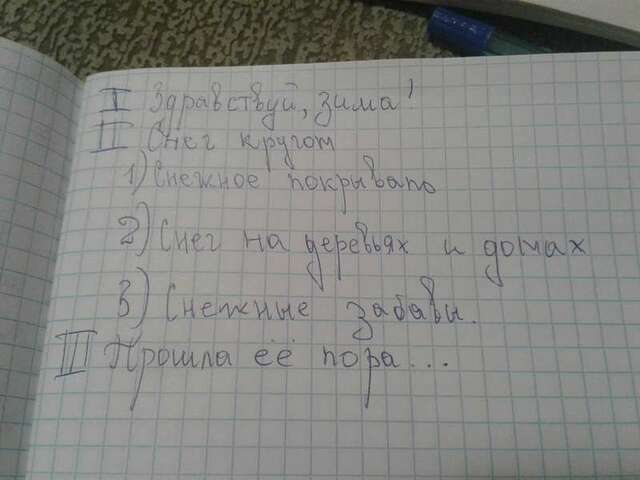 I Здравствуй, зима!
II Снег кругом
1) Снежное покрывало
2) Снег на деревьях и домах
3) Снежные забавы.
III Прошла её пора...